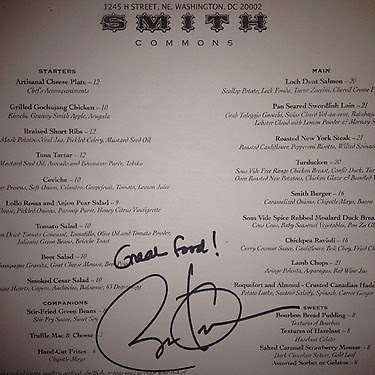 1245 H STREET, NE, WASHINGTON, DC 20002
SMITH
COMMONS
STARTERS
Artisanal Cheese Plate – 12
Chef's Accompaniments
Grilled Gochujang Chicken – 10
Kimchi, Granny Smith Apple, Arugula
Braised Short Ribs – 12
Mark Potatoes, Veal Jus, Pickled Celery, Mustard Seed Oil
Tuna Tartar – 12
Mustard Seed Oil, Avocado and Edamame Purée, Tobiko
Ceviche – 10
Prawns, Soft Onion, Cilantro, Grapefruit, Tomato, Lemon Juice
Lollo Rossa and Anjou Pear Salad – 9
Cheese, Pickled Onions, Parsnip Purée, Honey Citrus Vinaigrette
Tomato Salad – 10
Dried Tomato Couscous, Tomatillo, Olive Oil and Tomato Powder,
Julienne Green Beans, Brioche Toast
Beet Salad – 10
Champagne Granita, Goat Cheese Mousse,
Smoked Cesar Salad – 10
Romaine Hearts, Capers, Anchovies, Balsamic, 63 Degree
COMPANIONS
Stir-Fried Green Beans – 8
Stir Fry Sauce, Sweet Soy
Truffle Mac & Cheese –
Hand-Cut Frites –
Chipotle Mayo
MAIN
Loch Dent Salmon – 20
Scallop Potato, Leek Fondu, Turné Zucchini, Chervil Creme
Pan Seared Swordfish Loin – 21
Crab Taleggio Gnocchi, Swiss Chard Vol-au-vent, Ratatouille
Lobster Claw with Lemon Powder &
Roasted New York Steak – 21
Roasted Cauliflower, Pepperoni Risotto, Wilted Spinach
Turducken – 20
Sous Vide Free Range Chicken Breast, Confit Duck,
Oven Roasted New Potatoes, Chicken Glaze &
Smith Burger – 16
Caramelized Onions, Chipotle Mayo, Bacon
Sous Vide Spice Rubbed Moulard Duck Breast
Corn Cous, Baby Seasonal Vegetables, Pine
Chickpea Ravioli – 16
Curry Coconut Sauce, Cauliflower, Bok Choy, Fried
Lamb Chops – 21
Asiago Polenta, Asparagus, Red Wine Jus
Roquefort and Almond - Crusted Canadian
Potato Latke, Sautéed Salsify, Spinach, Carrot Ginger
SWEETS
Bourbon Bread Pudding – 8
Textures of Bourbon
Textures of Hazelnut – 8
Hazelnut Gelato
Salted Caramel Strawberry Mousse – 8
Dark Chocolate Spheres, Gold Leaf
Assorted Sorbet or Gelatos – 8
Great Food!